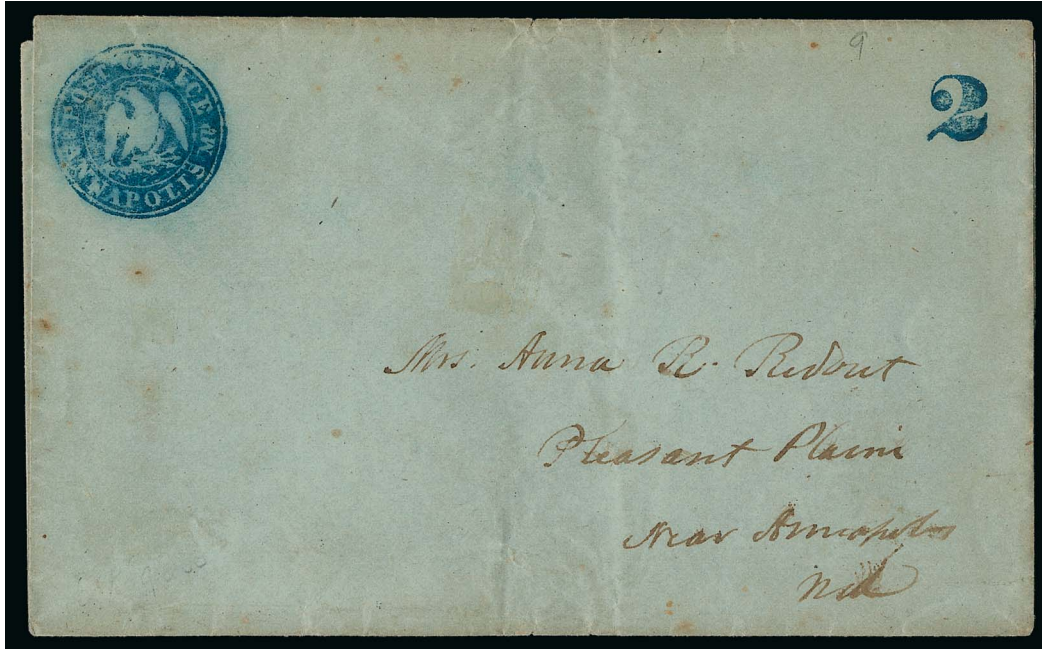 POST OFFICE
ANNAPOLIS M
2
9
Mrs. Anna R. Ridout
Pleasant Plains
Near Annapolis
Md